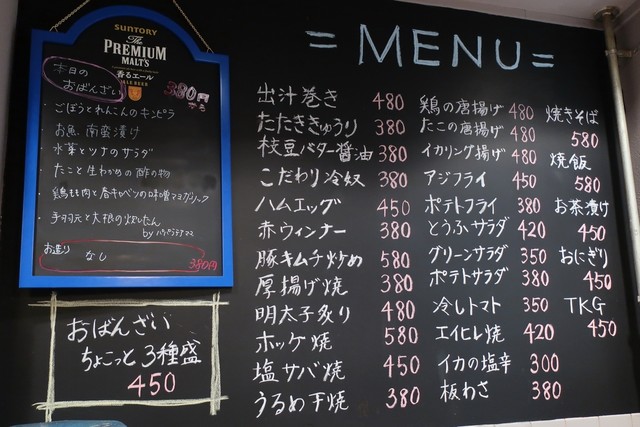 SUNTORY
The PREMIUM MALT'S
香るエール
本日のおばんざい 380円
・ごぼうとれんこんのキンピラ
・お魚南蛮漬け
・水菜とツナのサラダ
・たこと生わかめの酢の物
・鶏もも肉と春キャベツの味噌マヨガーリック
・手羽元と大根の炊いたん
by
お造り なし 380円
おばんざい
ちょこっと3種盛
450
= MENU =
出汁巻き 480
たたききゅうり 380
枝豆バター醤油 380
こだわり冷奴 380
ハムエッグ 450
赤ウィンナー 380
豚キムチ炒め 580
厚揚げ焼 380
明太子炙り 480
ホッケ焼 580
塩サバ焼 450
うるめ干焼 380
鶏の唐揚げ 480
たこの唐揚げ 480
イカリング揚げ 480
アジフライ 450
ポテトフライ 380
とうふサラダ 420
グリーンサラダ 350
ポテサラダ 380
冷しトマト 350
エイヒレ焼 420
イカの塩辛 300
板わさ 380
焼きそば
580
焼飯
580
お茶漬け
450
おにぎり
450
TKG
450